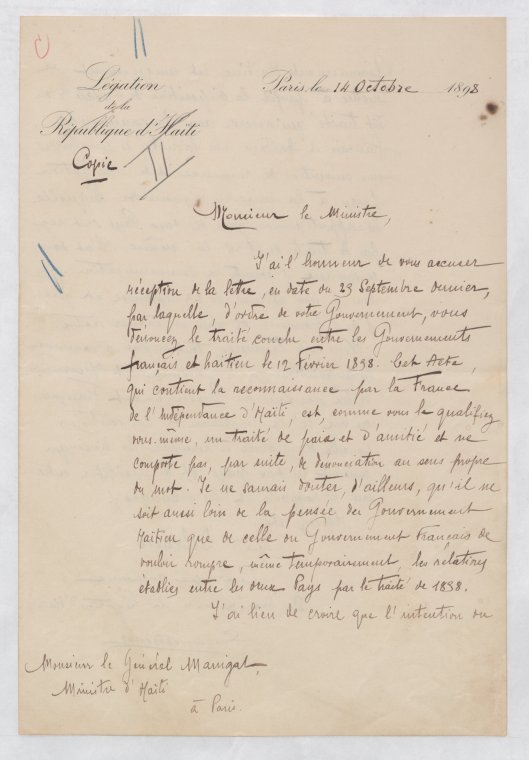 Légation
de la
République d'Haïti
Paris, le 14 Octobre 1898
Copie
Monsieur le Ministre,
J'ai l'honneur de vous accuser
réception de la lettre, en date du 23 Septembre dernier,
par laquelle, d'ordre de votre Gouvernement, vous
dénoncez le traité conclu entre les Gouvernements
français et haïtien le 12 Février 1838. Cet Acte,
qui contient la reconnaissance par la France
de l'Indépendance d'Haïti, est, comme vous le qualifiez
vous-même, un traité de paix et d'amitié et ne
comporte pas, par suite, de dénonciation au sens propre
du mot. Je ne saurais douter, d'ailleurs, qu'il ne
soit aussi loin de la pensée du Gouvernement
Haïtien que de celle du Gouvernement Français de
vouloir rompre, même temporairement, les relations
établies entre les deux Pays par le traité de 1838.
J'ai lieu de croire que l'intention du
Monsieur le Général Manigat,
Ministre d'Haïti
à Paris.